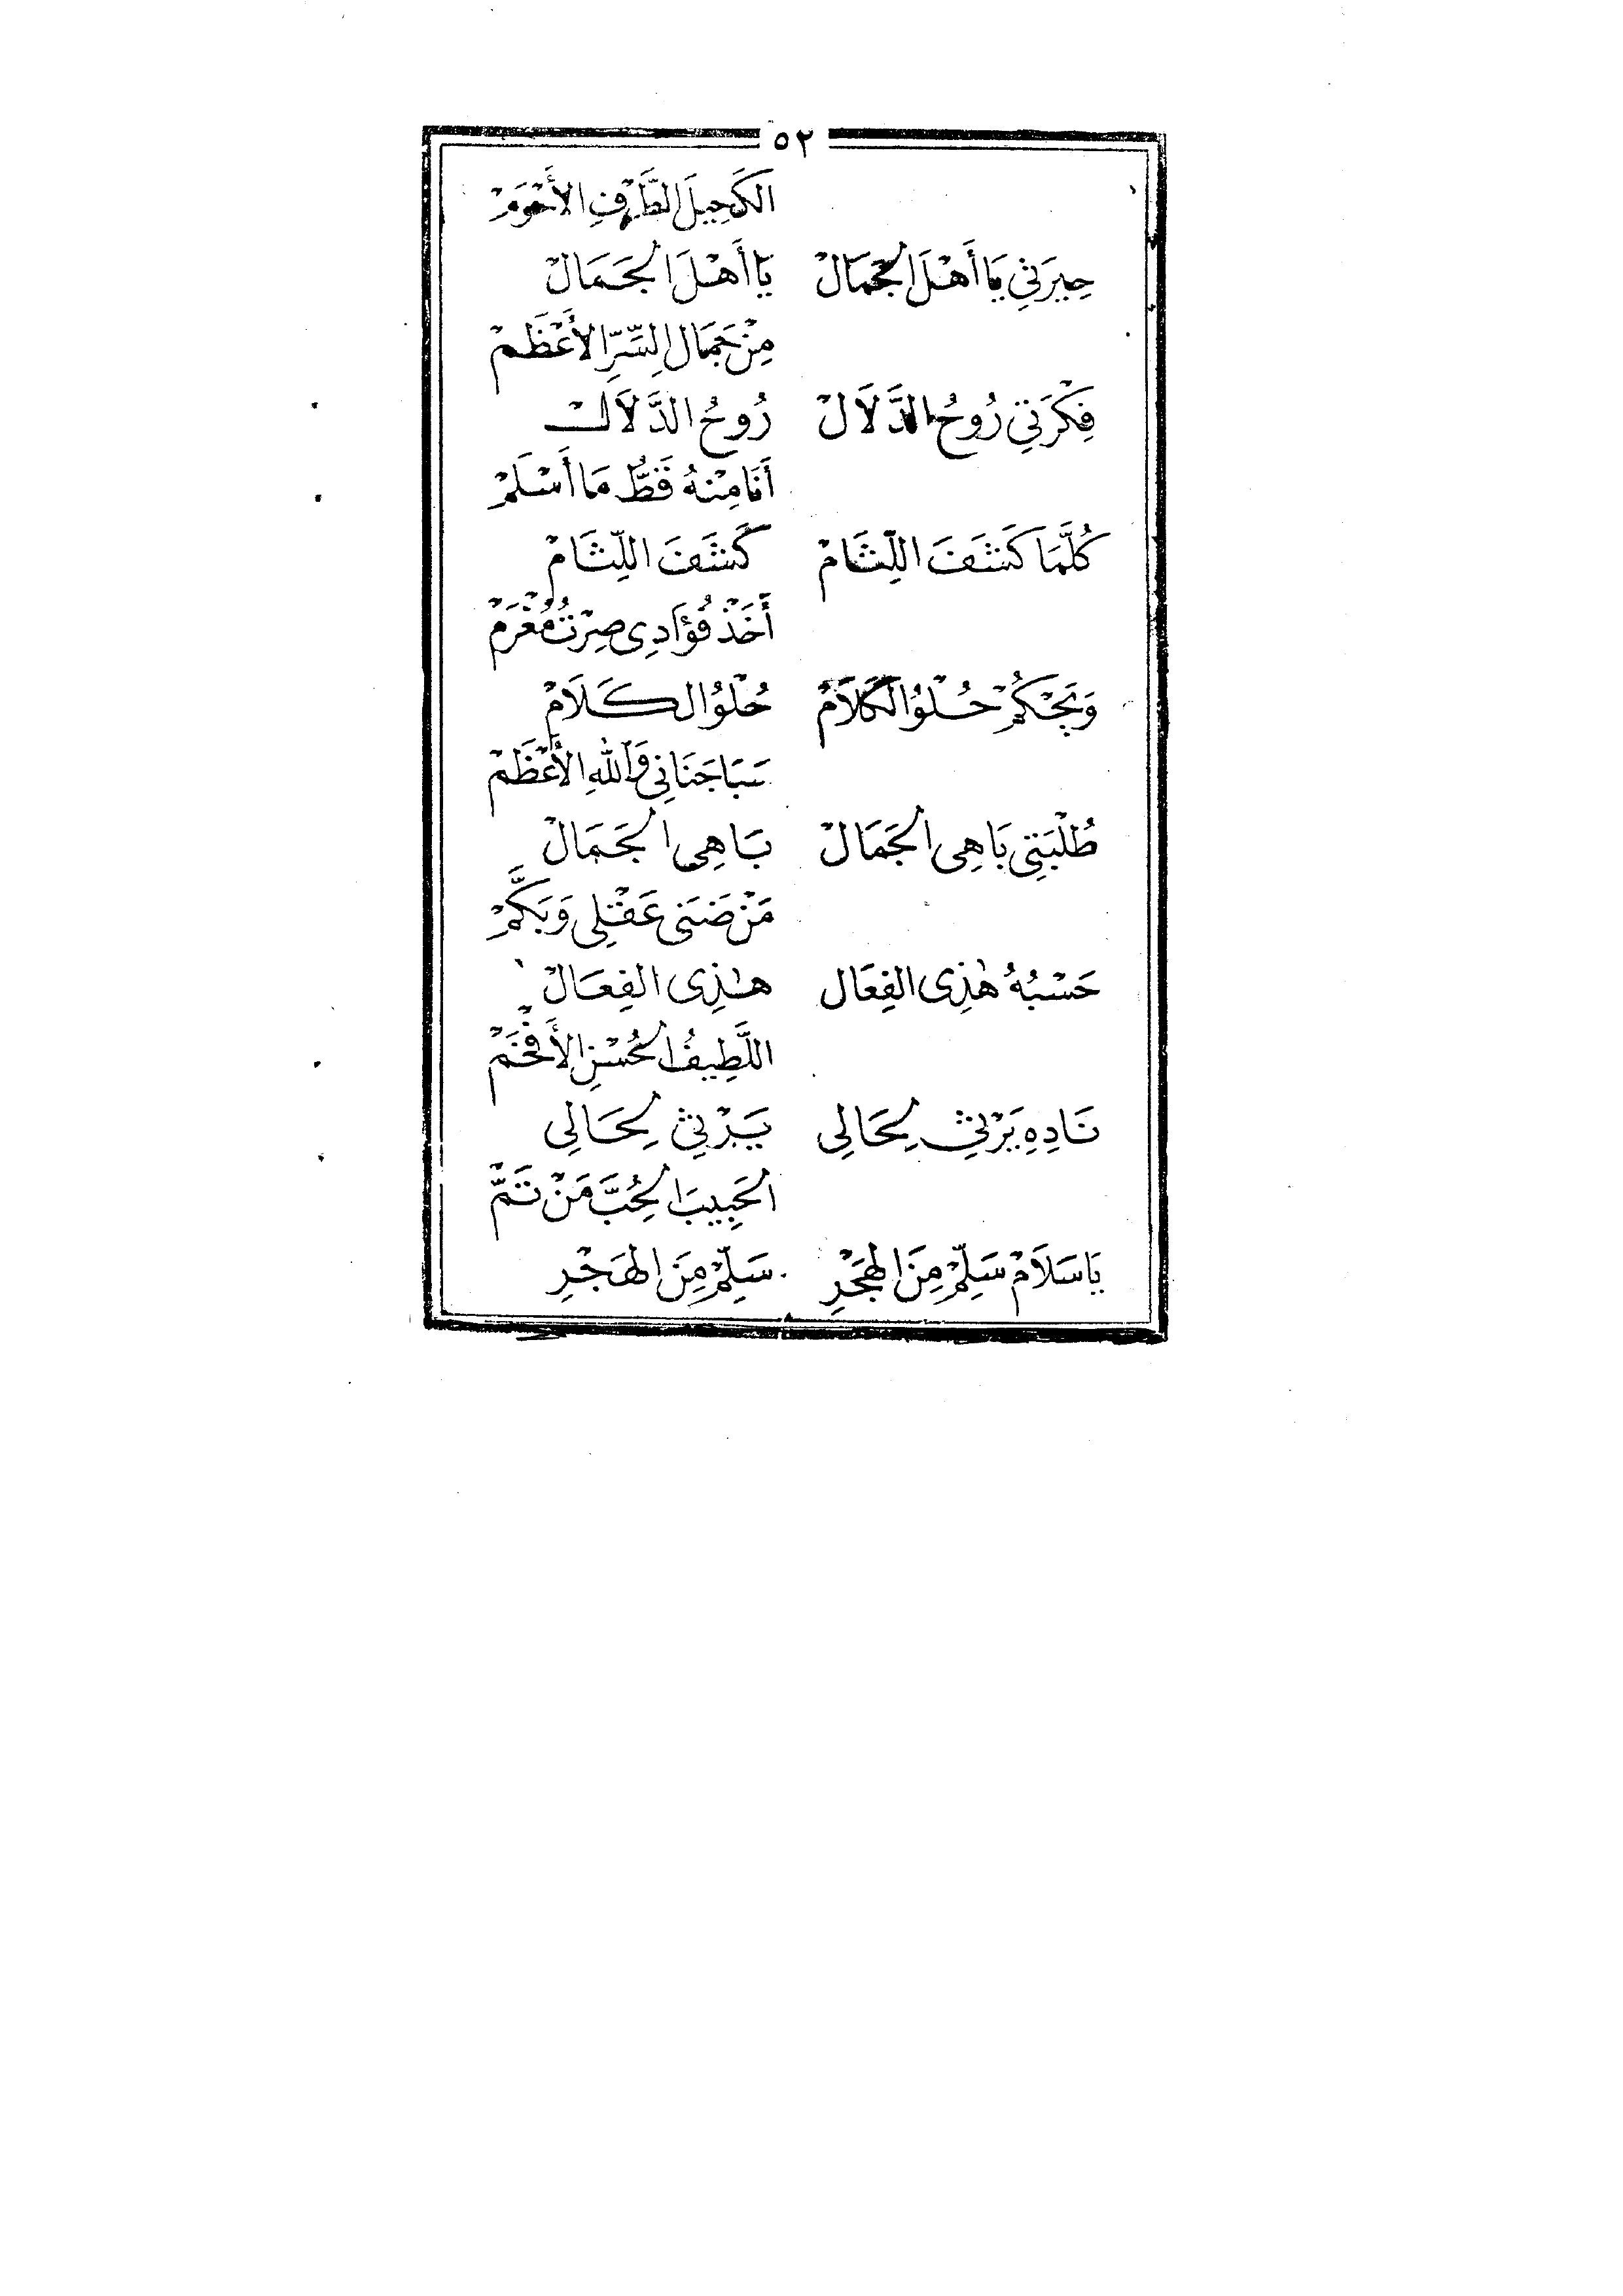 ٥٢
الكَحِيلَ الطَّرْفِ الأَحْوَمْ
حِيرَتِي يَا أَهْلَ الجَمَالْ يَا أَهْلَ الجَمَالْ
مِنْ جَمَالِ السِّرِّ الأَعْظَمْ
فِكْرَتِي رُوحُ الدَّلَالْ رُوحُ الدَّلَالْ
أَنَا مِنْهُ قَطُّ مَا أَسْلَمْ
كُلَّمَا كَشَفَ اللِّثَامْ كَشَفَ اللِّثَامْ
أَخَذْ فُؤَادِى صِرْتُ مُغْرَمْ
وَيَحْكُمْ حُلْوُ الكَلَامْ حُلْوُ الكَلَامْ
سَبَا جَنَانِي وَاللهِ الأَعْظَمْ
طُلْبَتِي بَاهِى الجَمَالْ بَاهِى الجَمَالْ
مَنْ ضَنَى عَقْلِى وَبَكَّمْ
حَسْبُهُ هٰذِى الفِعَال هٰذِى الفِعَالْ
اللَّطِيفُ الحُسْنِ الأَفْخَمْ
نَادِهِ يَرْثِي لِحَالِي يَرْثِي لِحَالِي
الحَبِيبَ الحُبَّ مَنْ تَمَّ
يَا سَلَامْ سَلِّمْ مِنَ الهَجْرِ سَلِّمْ مِنَ الهَجْرِ